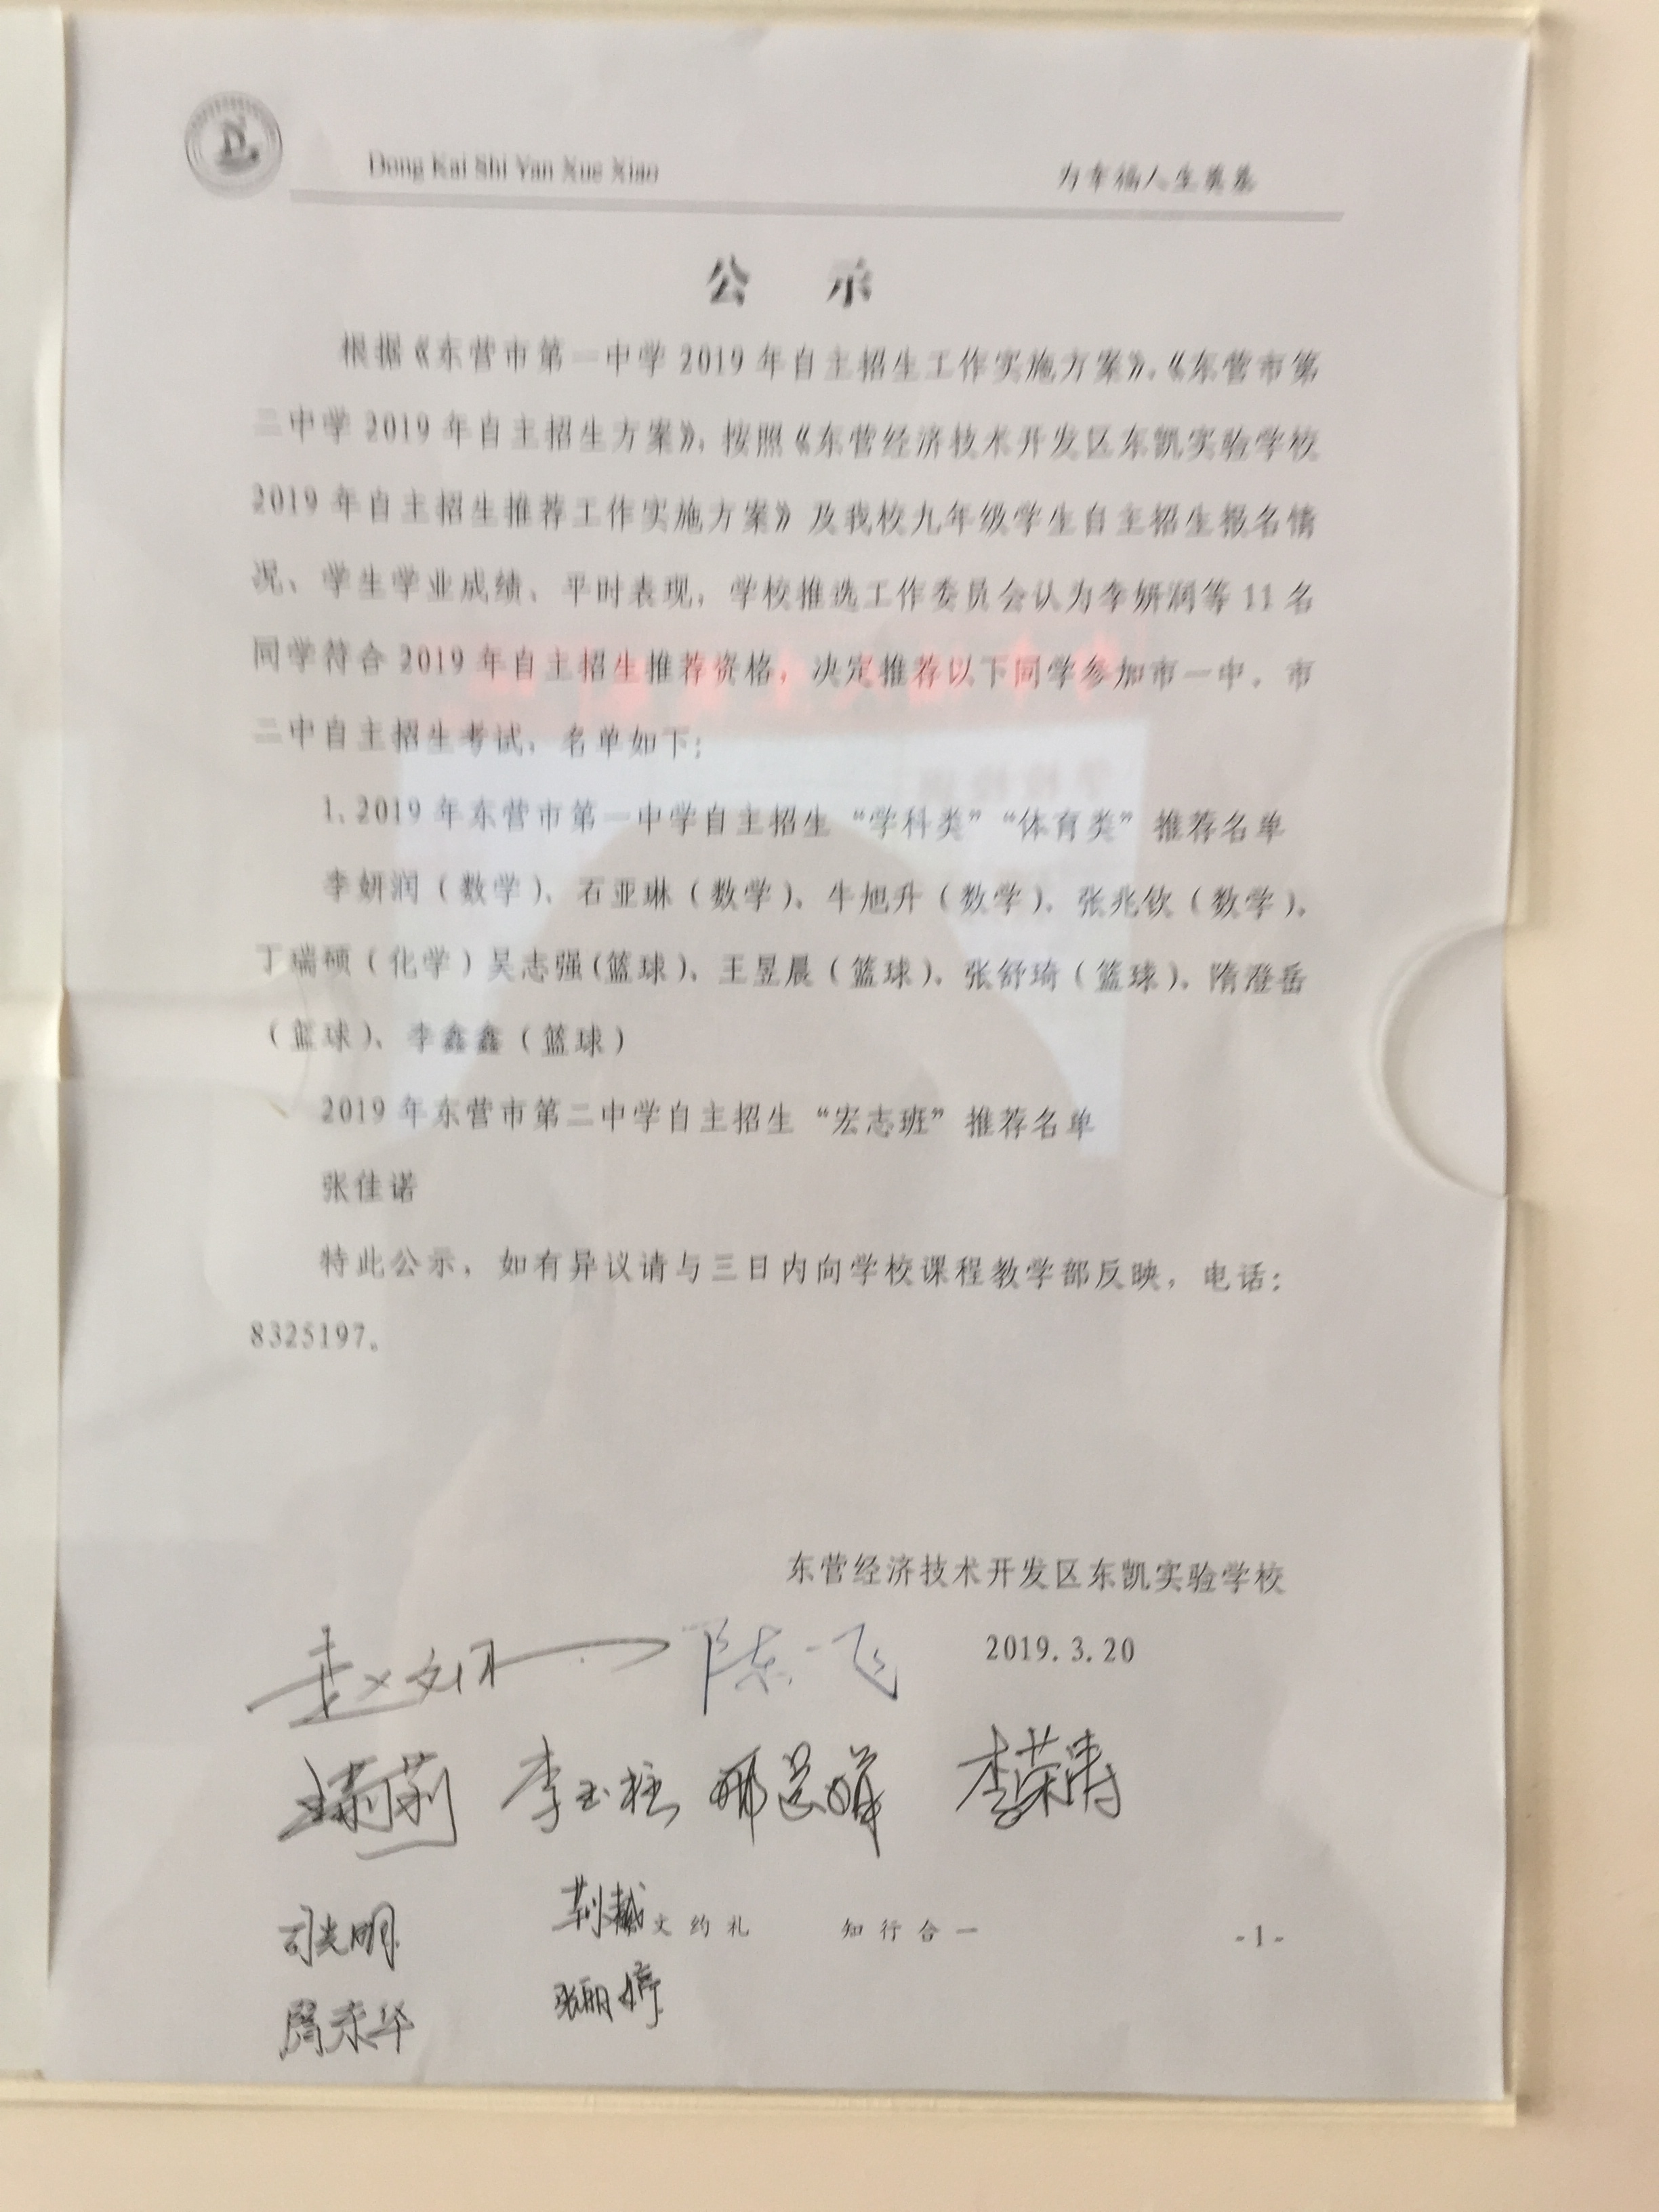 Dong Kai Shi Yan Xue Xiao 为幸福人生奠基
公 示
根据《东营市第一中学 2019 年自主招生工作实施方案》、《东营市第
二中学 2019 年自主招生方案》，按照《东营经济技术开发区东凯实验学校
2019 年自主招生推荐工作实施方案》及我校九年级学生自主招生报名情
况、学生学业成绩、平时表现，学校推选工作委员会认为李妍润等 11 名
同学符合 2019 年自主招生推荐资格，决定推荐以下同学参加市一中、市
二中自主招生考试，名单如下：
1. 2019 年东营市第一中学自主招生“学科类”“体育类”推荐名单
李妍润（数学）、石亚琳（数学）、牛旭升（数学）、张兆钦（数学）、
丁瑞硕（化学）吴志强(篮球）、王昱晨（篮球）、张舒琦（篮球）、隋澄岳
（篮球）、李鑫鑫（篮球）
2019 年东营市第二中学自主招生“宏志班”推荐名单
张佳诺
特此公示，如有异议请与三日内向学校课程教学部反映，电话：
8325197。
东营经济技术开发区东凯实验学校
陈一飞 2019.3.20
李玉柱 李荣涛
司光明 文约礼 知行合一 -1-
周荣华 张丽婷